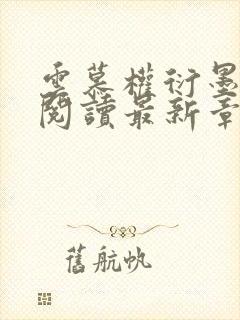 雲慕權衍墨
閱讀最新章
舊航帆